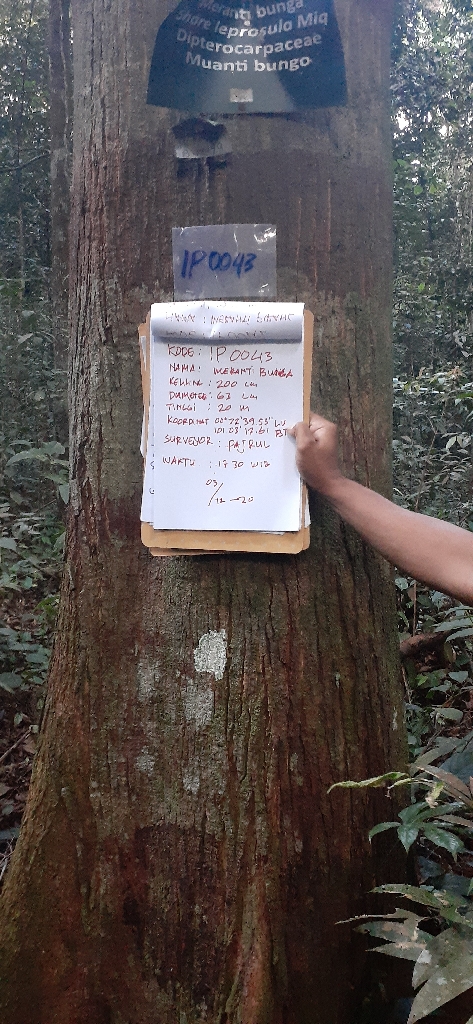 Meranti bunga
Shore leprosulo Miq
Dipterocarpaceae
Muanti bungo
IP0043
KODE : IP0043
NAMA : MERANTI BUNGA
KELILING : 200 cm
DIAMETER : 63 cm
TINGGI : 20 m
KOORDINAT LU
BT
SURVEYOR : FAJRUL
WAKTU : WIB
03
/12 -20